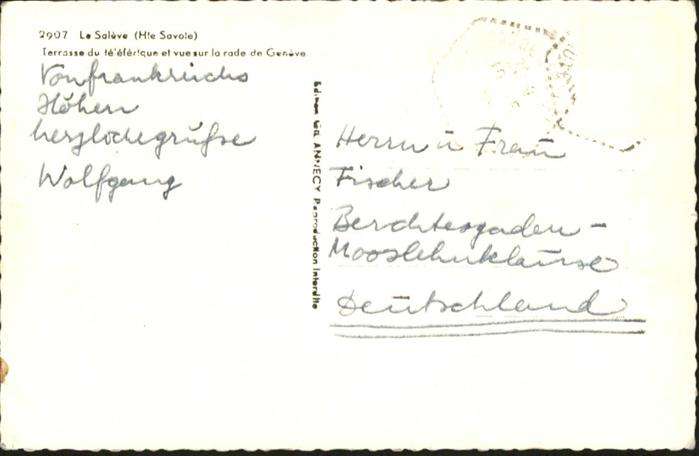 2907 Le Salève (Hte Savoie)
Terrasse du téléférique et vue sur la rade de Genève
Von frankreichs
Höhen
herzlichegrüße
Wolfgang
Edition GIL ANNECY Reproduction Interdite
Herrn u Frau
Fischer
Berchtesgaden -
Mooslehnklause
Deutschland